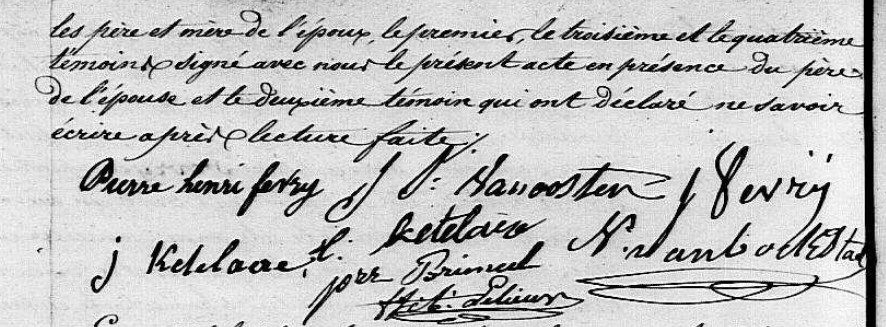 les père et mère de l'époux, le premier, le troisième et le quatrième
témoins signé avec nous le présent acte en présence du père
de l'épouse et le deuxième témoin qui ont déclaré ne savoir
écrire après lecture faite /.
Pierre henri fevry J P. Vanoosten j fevrij
j Ketelaere, L. Ketelaere N. vanbockstal